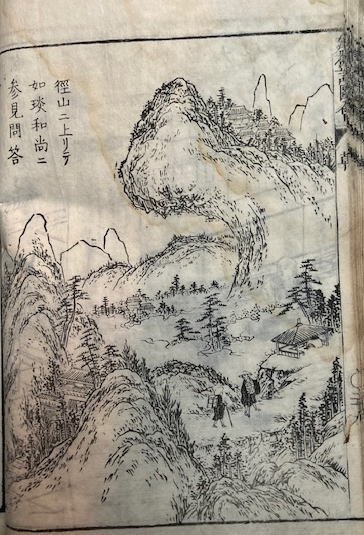 徑山ニ上リテ
如琰和尚ニ
参見問答